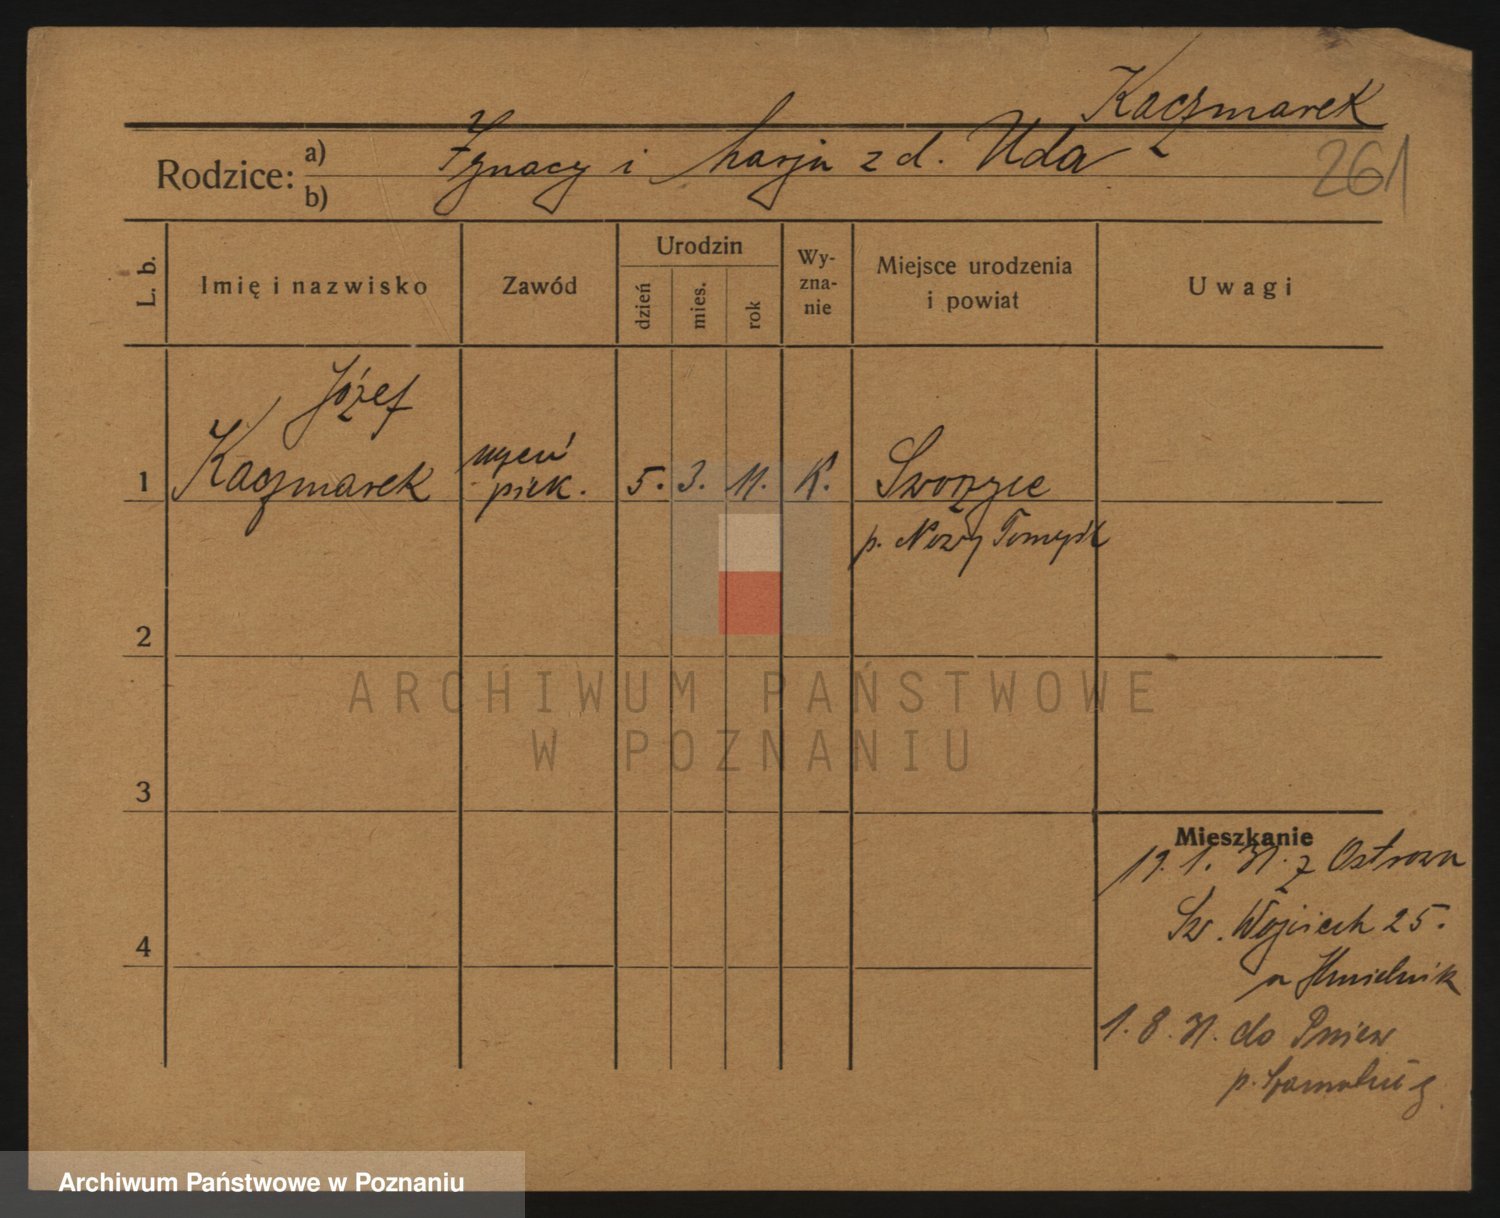 Kaczmarek
261
Rodzice: a) Ignacy i Marja z d. Uda
b)
L. b.
Imię i nazwisko
Zawód
Urodzin
dzień
mies.
rok
Wy-
zna-
nie
Miejsce urodzenia
i powiat
Uwagi
Józef
1 Kaczmarek
uczeń
piek.
5. 3. 11. K.
Sworzyce
p. Nowy Tomyśl
2
3
4
Mieszkanie
19. 1. 31. z Ostrowa
Św. Wojciech 25.
u Chmielnik
1. 8. 31. do Pniew
p. Szamotuły
ARCHIWUM PAŃSTWOWE
W POZNANIU
Archiwum Państwowe w Poznaniu